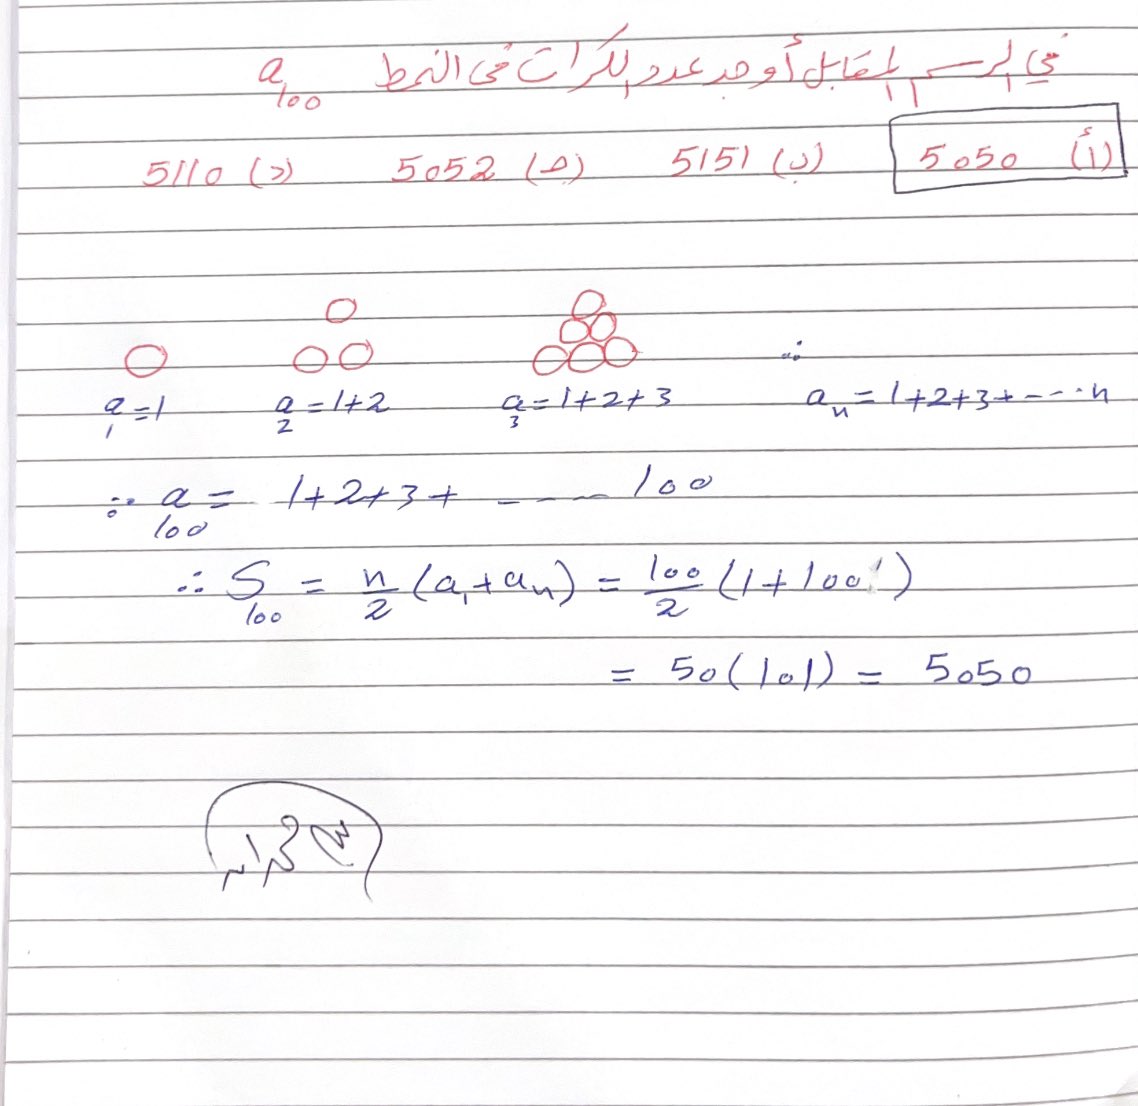 في الرسم المقابل أوجد عدد الكرات في النمط a₁₀₀
(أ) 5050 (ب) 5151 (ج) 5052 (د) 5110
a₁ = 1 a₂ = 1+2 a₃ = 1+2+3 ∴ aₙ = 1+2+3+----n
∵ a₁₀₀ = 1+2+3+ ---- 100
∴ S₁₀₀ = n/2 (a₁+aₙ) = 100/2 (1+100)
= 50(101) = 5050